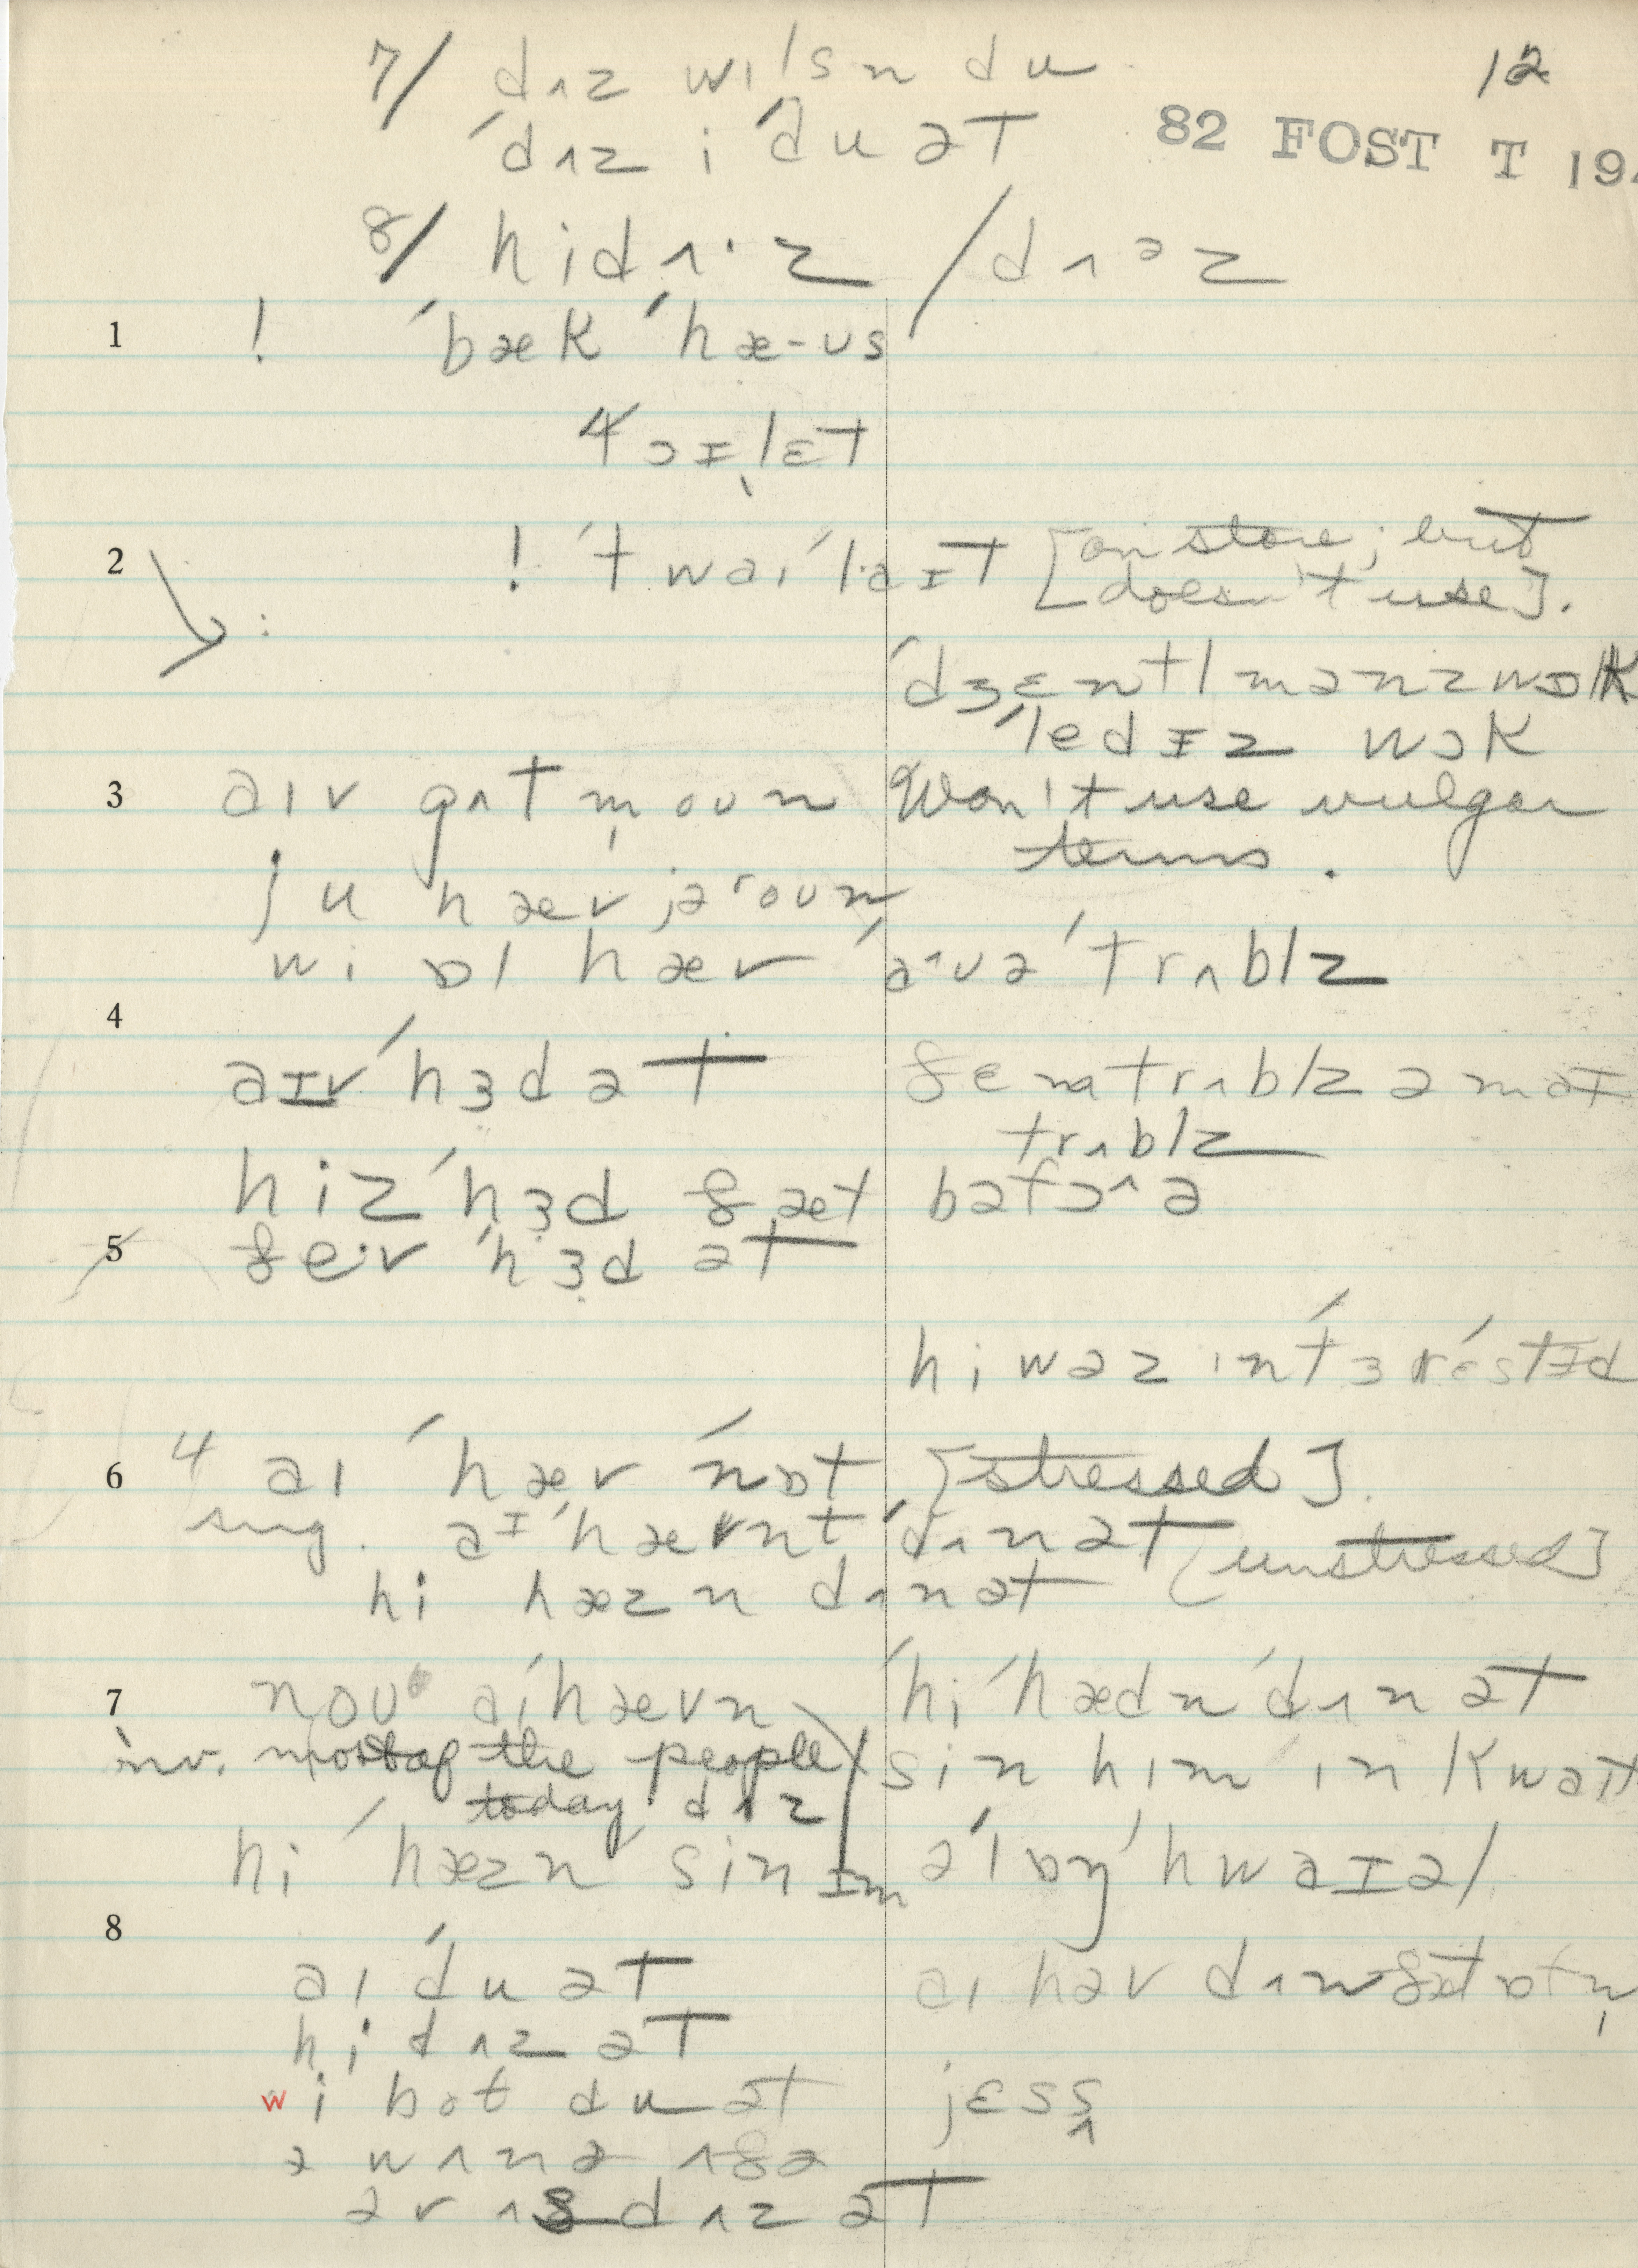 12
7/ dʌz wɪlsn du
ˈdʌz i ˈdu ət
82 FOST T 19
8/ hidʌ·z / dʌəz
1 ! ˈbæk ˈhæ-ʊs
ˈtɔɪlɛt
2 ! ˈtwaɪˈlaɪt [on store; but
doesn't use].
ˈdʒɛntlmənzwɒk
ˈledɪz wɔk
3 aɪv gʌt m̩ oʊn
Won't use vulgar
terms.
ju hæv jəroʊn
wi ɒl hæv aˆʊə ˈtrʌblz
4
aɪv ˈhɜd ət
ðɛmtrʌblz ə maɪ
trʌblz
hiz ˈhɜd ðæt bəfɔˆə
5 ðe·v ˈhɜd ət
hi wəz ɪnˈtɜˈrɛstɪd
6 4 aɪ ˈhæv ˈnɒt [stressed].
sing. aɪ ˈhævnt ˈdʌn ət [unstressed]
hi hæzn dʌn ət
7 noʊ aɪ hævn
hi ˈhædn ˈdʌn ət
inv. most of the people
today dʌz
sin hɪm ɪn kwaɪt
hi ˈhæzn sin ɪm əˈlɒŋ ˈhwaɪəl
8
aɪ ˈdu ət
aɪ həv dʌn ðæt ɒfn̩
hi dʌz ət
wi bot du ət
jɛss
ə wʌnə ʌðə
ər ʌð dʌz ət